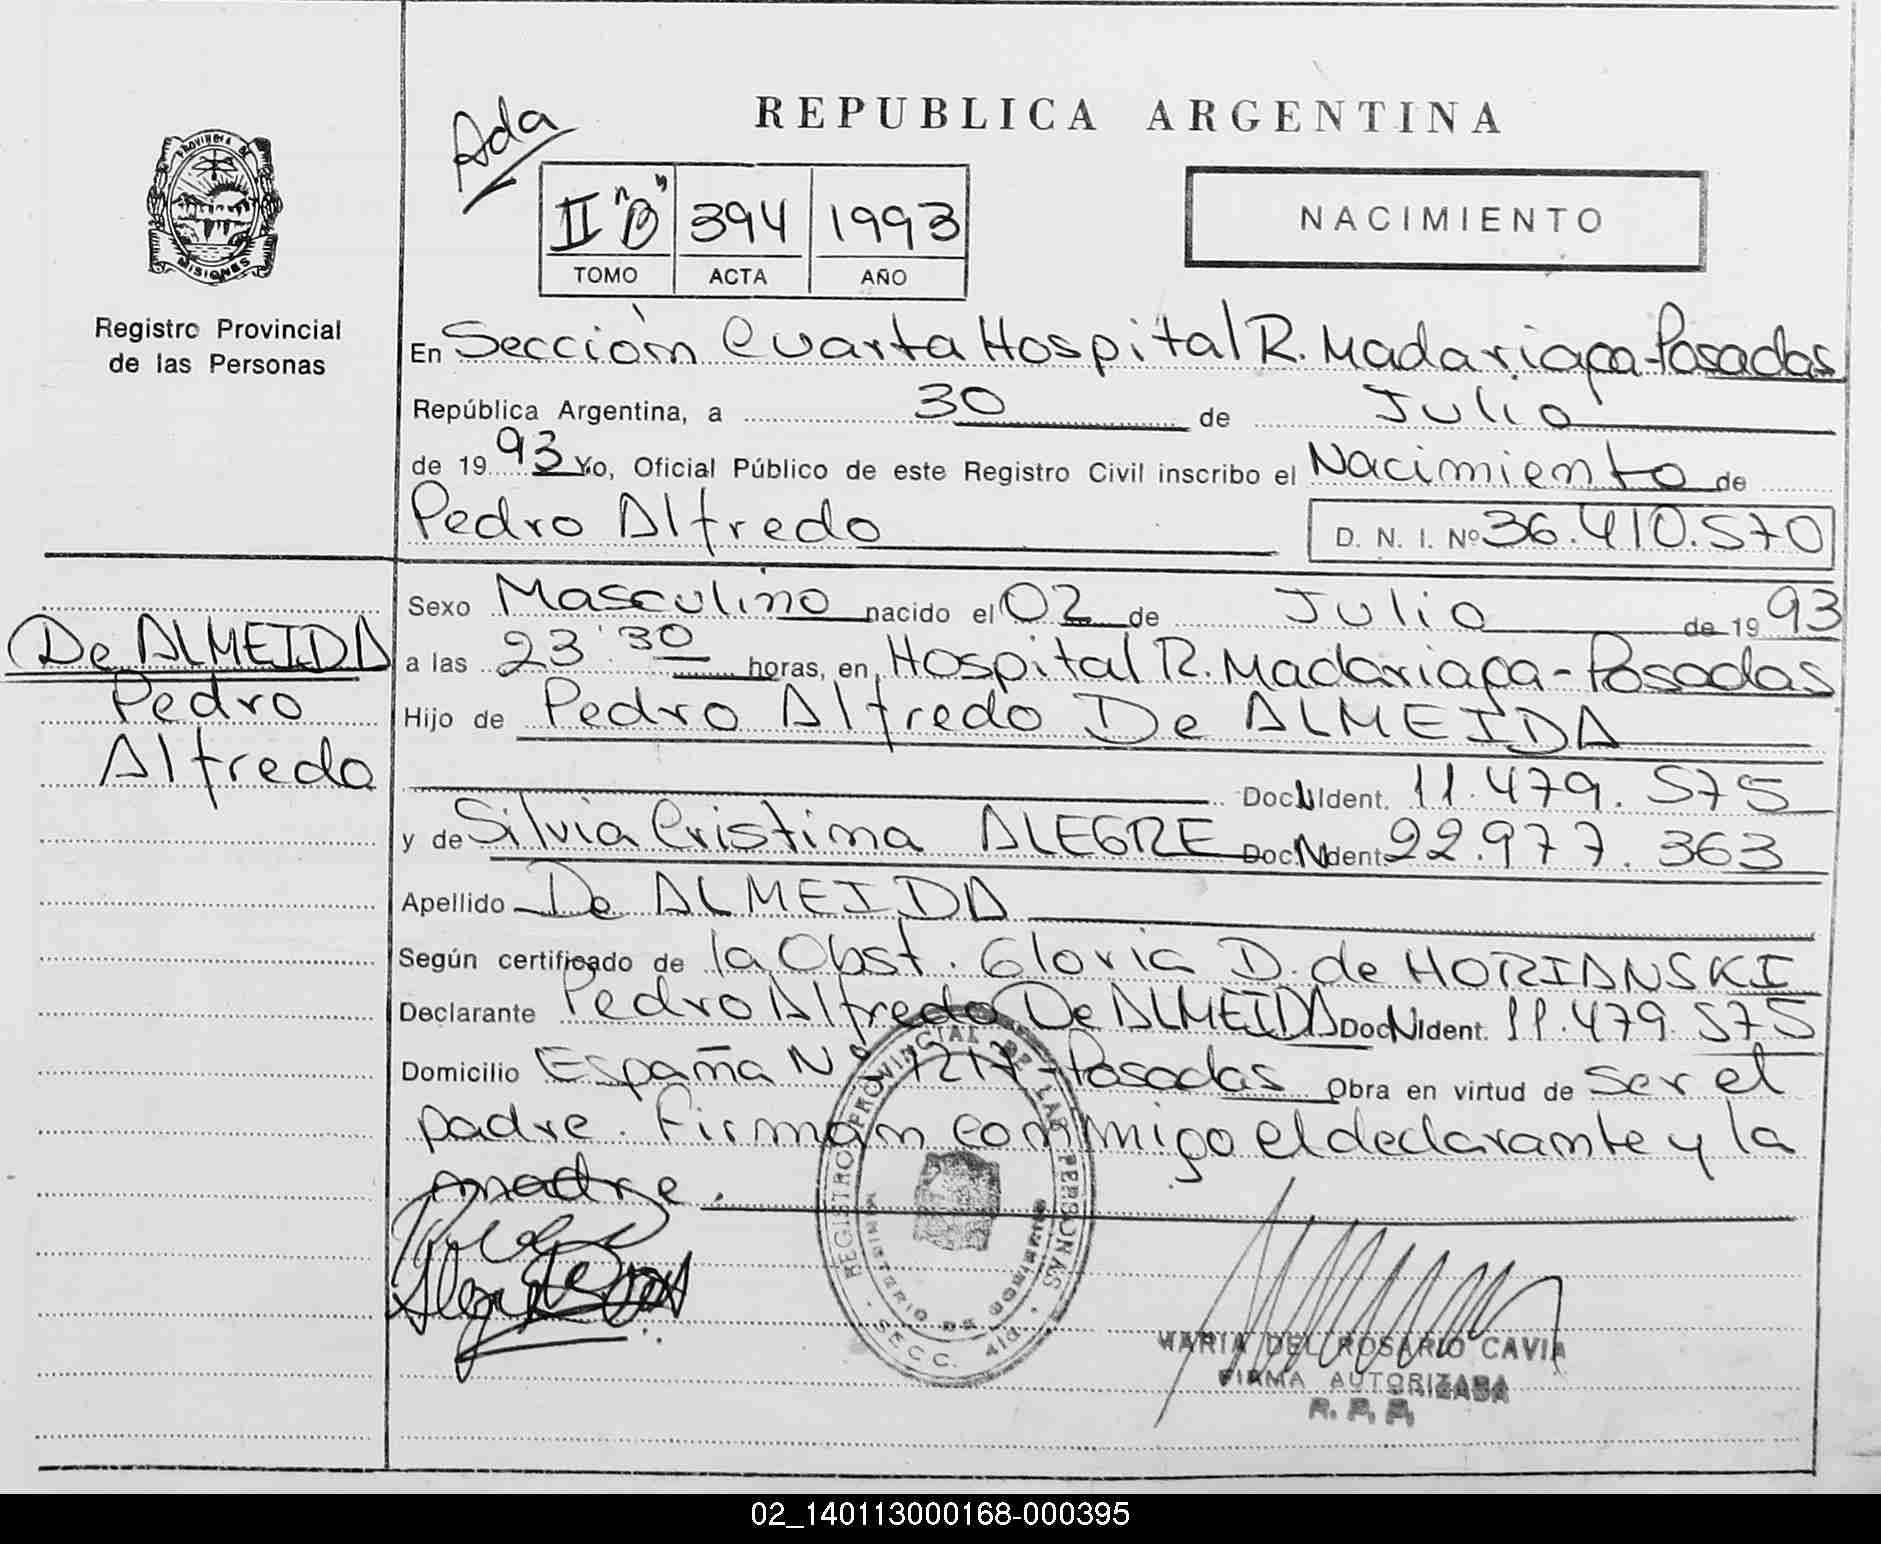 REPUBLICA ARGENTINA
Ada
II "B" 394 1993
TOMO ACTA AÑO
NACIMIENTO
PROVINCIA DE
MISIONES
Registro Provincial
de las Personas
En Sección Cuarta Hospital R. Madariaga-Posadas
República Argentina, a 30 de Julio
de 19 93 Yo, Oficial Público de este Registro Civil inscribo el Nacimiento de
Pedro Alfredo D. N. I. Nº 36.410.570
De ALMEIDA
Pedro
Alfredo
Sexo Masculino nacido el 02 de Julio de 19 93
a las 23:30 horas, en Hospital R. Madariaga-Posadas
Hijo de Pedro Alfredo De ALMEIDA
Doc N Ident. 11.479.575
y de Silvia Cristina ALEGRE Doc N Ident. 22.977.363
Apellido De ALMEIDA
Según certificado de la Obst. Gloria D. de HORIANSKI
Declarante Pedro Alfredo De ALMEIDA Doc N Ident. 11.479.575
Domicilio España Nº 1217-Posadas Obra en virtud de ser el
padre. Firman conmigo el declarante y la
madre.
REGISTRO PROVINCIAL DE LAS PERSONAS
MINISTERIO DE GOBIERNO
SECC. 4ta
MARIA DEL ROSARIO CAVIA
FIRMA AUTORIZADA
R. P. P.
02_140113000168-000395